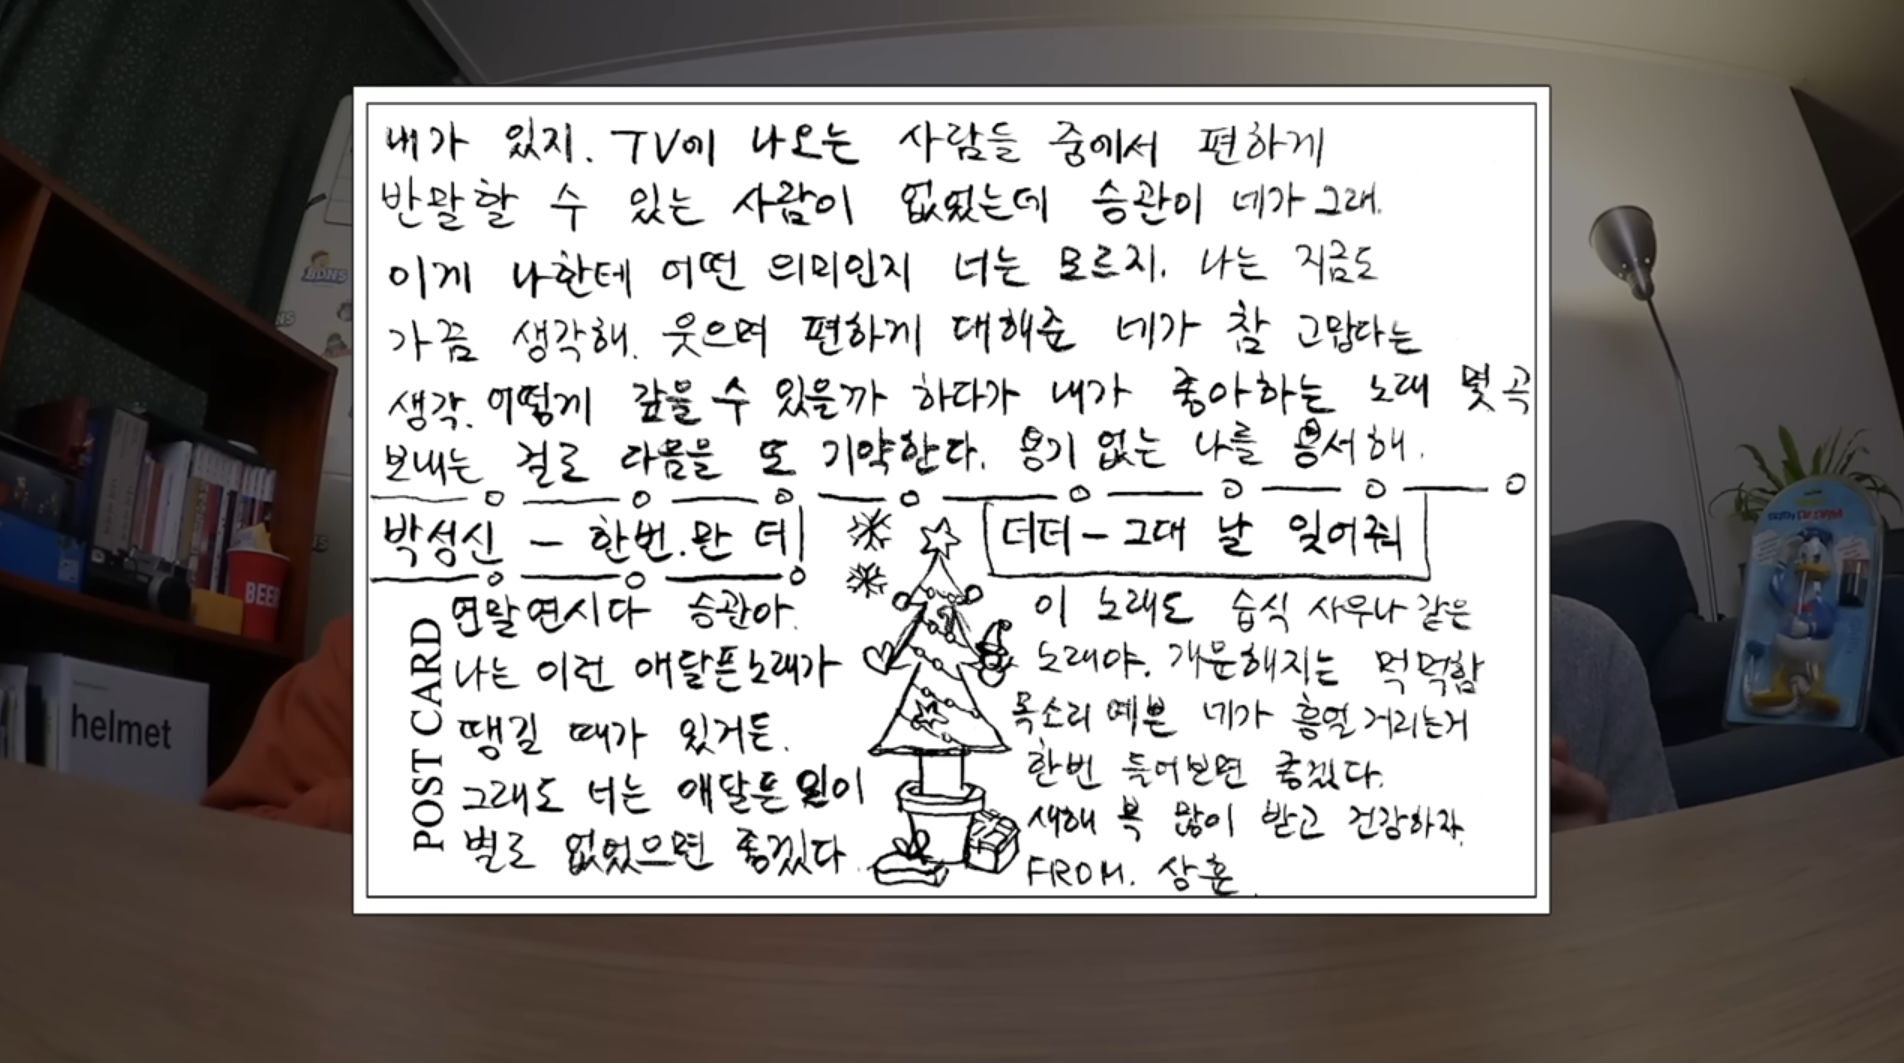 내가 있지. TV에 나오는 사람들 중에서 편하게
반말할 수 있는 사람이 없었는데 승관이 네가 그래.
이게 나한테 어떤 의미인지 너는 모르지. 나는 지금도
가끔 생각해. 웃으며 편하게 대해준 네가 참 고맙다는
생각. 어떻게 갚을 수 있을까 하다가 내가 좋아하는 노래 몇 곡
보내는 걸로 다음을 또 기약한다. 용기 없는 나를 용서해.
박성신 - 한번.만 더
더더 - 그대 날 잊어줘
POST CARD
연말연시다 승관아.
나는 이런 애달픈 노래가
땡길 때가 있거든.
그래도 너는 애달픈 일이
별로 없었으면 좋겠다.
이 노래도 습식 사우나 같은
노래야. 개운해지는 먹먹함
목소리 예쁜 네가 흥얼거리는거
한번 들어보면 좋겠다.
새해 복 많이 받고 건강하자.
FROM. 상훈.
BDNS
NS
BEER
helmet